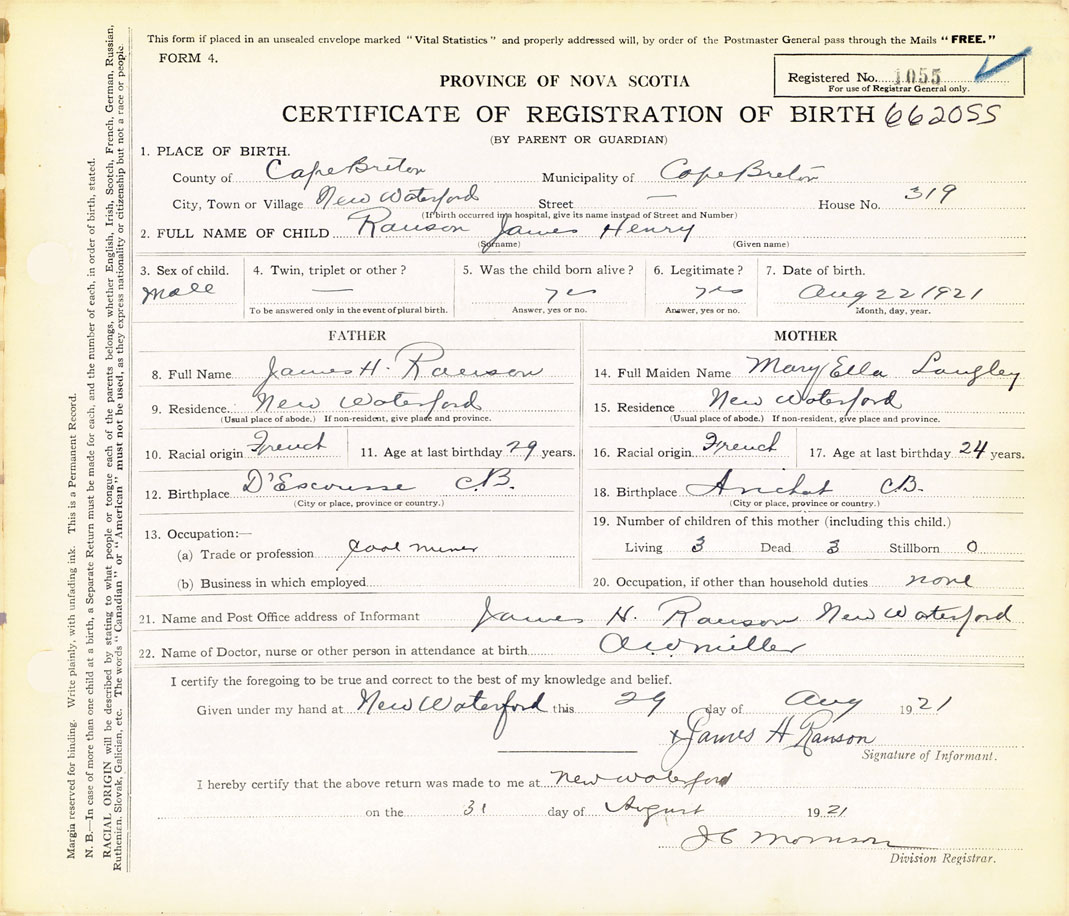 This form if placed in an unsealed envelope marked "Vital Statistics" and properly addressed will, by order of the Postmaster General pass through the Mails "FREE."
FORM 4.
Registered No. 1055
For use of Registrar General only.
PROVINCE OF NOVA SCOTIA
CERTIFICATE OF REGISTRATION OF BIRTH 662055
(BY PARENT OR GUARDIAN)
1. PLACE OF BIRTH.
County of Cape Breton Municipality of Cape Breton
City, Town or Village New Waterford Street — House No. 319
(If birth occurred in a hospital, give its name instead of Street and Number)
2. FULL NAME OF CHILD Ranson James Henry
(Surname) (Given name)
3. Sex of child. 4. Twin, triplet or other? 5. Was the child born alive? 6. Legitimate? 7. Date of birth.
Male — yes yes Aug 22 1921
To be answered only in the event of plural birth. Answer, yes or no. Answer, yes or no. Month, day, year.
FATHER
8. Full Name James H. Ranson
9. Residence. New Waterford
(Usual place of abode.) If non-resident, give place and province.
10. Racial origin French 11. Age at last birthday 29 years.
12. Birthplace D'Escousse C.B.
(City or place, province or country.)
13. Occupation:—
(a) Trade or profession Coal miner
(b) Business in which employed
MOTHER
14. Full Maiden Name Mary Ella Langley
15. Residence New Waterford
(Usual place of abode.) If non-resident, give place and province.
16. Racial origin French 17. Age at last birthday 24 years.
18. Birthplace Arichat C.B.
(City or place, province or country.)
19. Number of children of this mother (including this child.)
Living 3 Dead 3 Stillborn 0
20. Occupation, if other than household duties none
21. Name and Post Office address of Informant James H. Ranson New Waterford
22. Name of Doctor, nurse or other person in attendance at birth AW Miller
I certify the foregoing to be true and correct to the best of my knowledge and belief.
Given under my hand at New Waterford this 29 day of Aug 1921
x James H Ranson
Signature of Informant.
I hereby certify that the above return was made to me at New Waterford
on the 31 day of August 1921
J C Morrison
Division Registrar.
Margin reserved for binding. Write plainly, with unfading ink. This is a Permanent Record.
N. B.—In case of more than one child at a birth, a Separate Return must be made for each, and the number of each, in order of birth, stated.
RACIAL ORIGIN will be described by stating to what people or tongue each of the parents belongs, whether English, Irish, Scotch, French, German, Russian,
Ruthenian, Slovak, Galician, etc. The words "Canadian" or "American" must not be used, as they express nationality or citizenship but not a race or people.